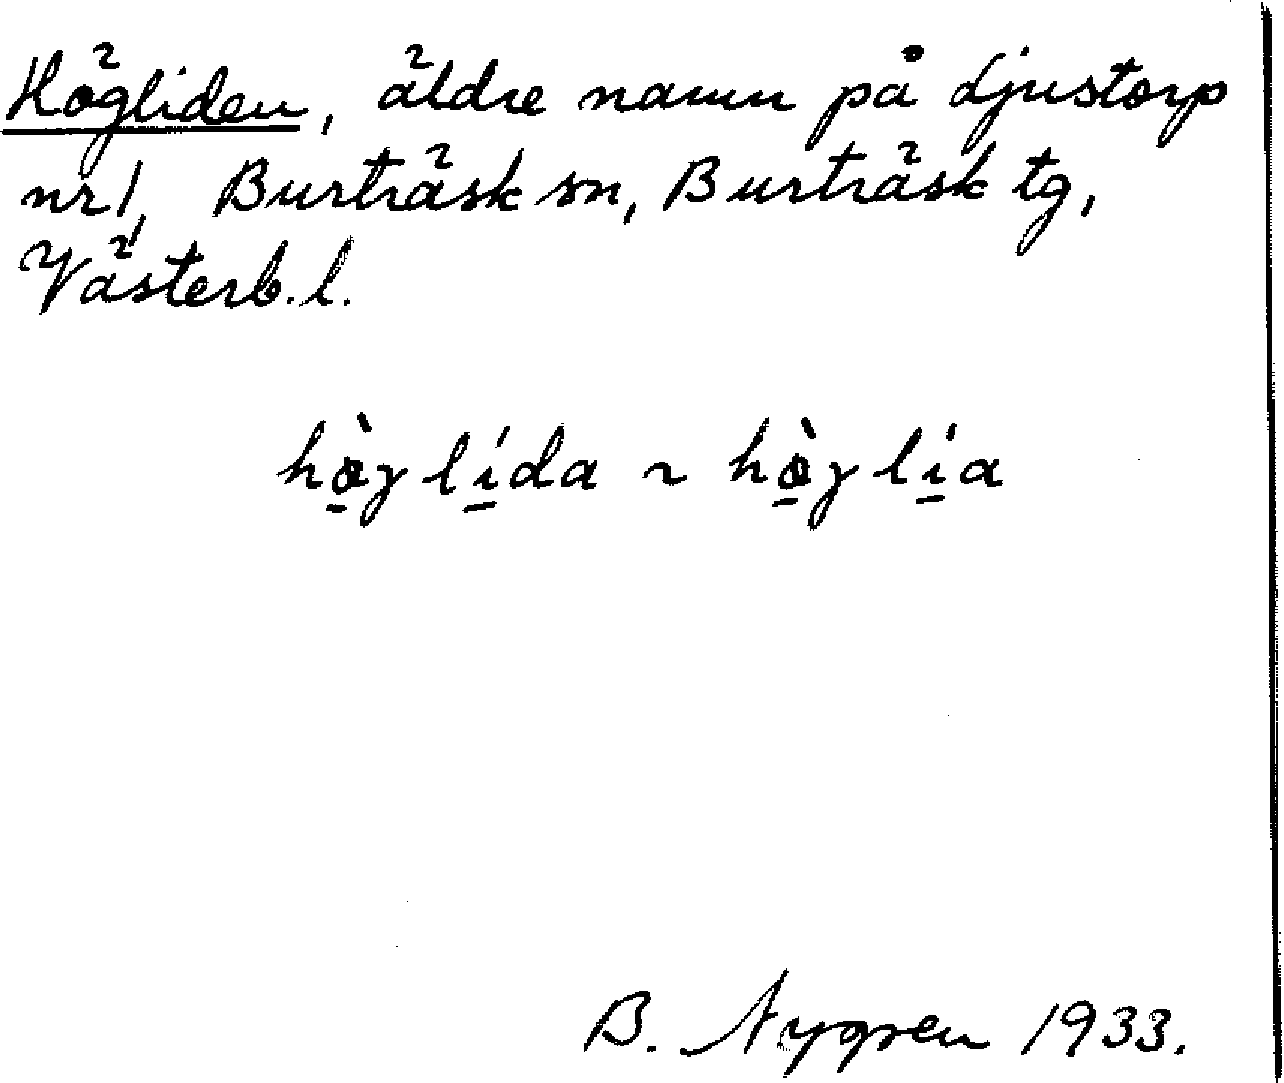 Högliden, äldre namn på Ljustorp
nr 1, Burträsk sn, Burträsk tg,
Västerb. l.
hø̱̀ɣlí̱da ~ hø̱̀ɣlí̱a
B. Nygren 1933.